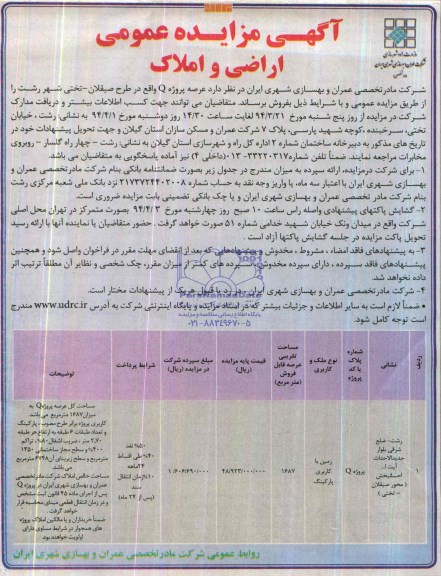 آگهی مزایده عمومی
اراضی و املاک
شرکت مادرتخصصی عمران و بهسازی شهری ایران در نظر دارد عرصه پروژه Q واقع در طرح صیقلان -تختی شهر رشت را
از طریق مزایده عمومی و با شرایط ذیل بفروش برساند. متقاضیان می توانند جهت کسب اطلاعات بیشتر و دریافت مدارک
شرکت در مزایده از روز پنج شنبه مورخ ۹۴/۳/۲۱ لغایت ساعت ۱۴/۳۰ روز دوشنبه مورخ ۹۴/۴/۱ به نشانی: رشت، خیابان
تختی، سرخبنده، کوچه شهید پارسی، پلاک ۷ شرکت عمران و مسکن سازان استان گیلان و جهت تحویل پیشنهادات خود در
تاریخ های مذکور به دبیرخانه ساختمان شماره ۲ اداره کل راه و شهرسازی استان گیلان به نشانی: رشت - چهار راه گلسار - روبروی
مخابرات مراجعه نمایند. ضمناً تلفن شماره ۳۳۲۲۰۳۱۷-۰۱۳ (داخلی ۴) نیز آماده پاسخگویی به متقاضیان می باشد.
۱- برای شرکت درمزایده، ارائه سپرده به میزان مندرج در جدول زیر بصورت ضمانتنامه بانکی بنام شرکت مادر تخصصی عمران و
بهسازی شهری ایران با اعتبار سه ماه، یا واریز وجه نقد به حساب شماره ۲۱۷۳۷۲۴۴۰۲۰۰۸ نزد بانک ملی شعبه مرکزی رشت
بنام شرکت مادر تخصصی عمران و بهسازی شهری ایران و یا چک بانکی تضمینی بابت مزایده ضروری است.
۲- گشایش پاکتهای پیشنهادی واصله راس ساعت ۱۰ صبح روز چهارشنبه مورخ ۹۴/۴/۳ بصورت متمرکز در تهران محل اصلی
شرکت واقع در میدان ونک خیابان شهید خدامی شماره ۵۱ صورت خواهد گرفت. حضور متقاضیان یا نماینده آنها با ارائه رسید
تحویل پاکت مزایده در جلسه گشایش پاکتها آزاد است.
۳- به پیشنهادهای فاقد امضاء، مشروط، مخدوش و پیشنهادهایی که بعد از انقضای مهلت مقرر در فراخوان واصل شود و همچنین
پیشنهادهای فاقد سپرده، دارای سپرده مخدوش و سپرده های کمتر از میزان مقرر، چک شخصی و نظایر آن مطلقاً ترتیب اثر
داده نخواهد شد.
۴- شرکت مادر تخصصی عمران و بهسازی شهری ایران، در رد یا قبول هر یک از پیشنهادات مختار است.
* ضمناً لازم است به سایر اطلاعات و جزئیات بیشتر که در اسناد مزایده و پایگاه اینترنتی شرکت به آدرس www.udrc.ir مندرج
است توجه کامل شود.
۰۲۱-۸۸۳۴۹۶۷۰-۵
ردیف | نشانی | شماره پلاک یا کد پروژه | نوع ملک و کاربری | مساحت تقریبی عرصه قابل فروش (متر مربع) | قیمت پایه مزایده (ریال) | مبلغ سپرده شرکت در مزایده (ریال) | شرایط پرداخت | توضیحات
۱ | رشت- ضلع شرقی بلوار جدیدالاحداث | پروژه Q | زمین با کاربری پارکینگ | ۱۶۸۷ | ۴۸/۹۲۳/۰۰۰/۰۰۰ | ۱/۶۰۶/۶۹۰/۰۰۰ | ۵۰% نقد ۴۰% طی اقساط ۲۴ماهه ۱۰% زمان انتقال سند (پس از ۲۴ ماه)
مساحت کل عرصه پروژه Q به
میزان ۱۶۸۷ مترمربع می باشد
روابط عمومی شرکت مادرتخصصی عمران و بهسازی شهری ایران